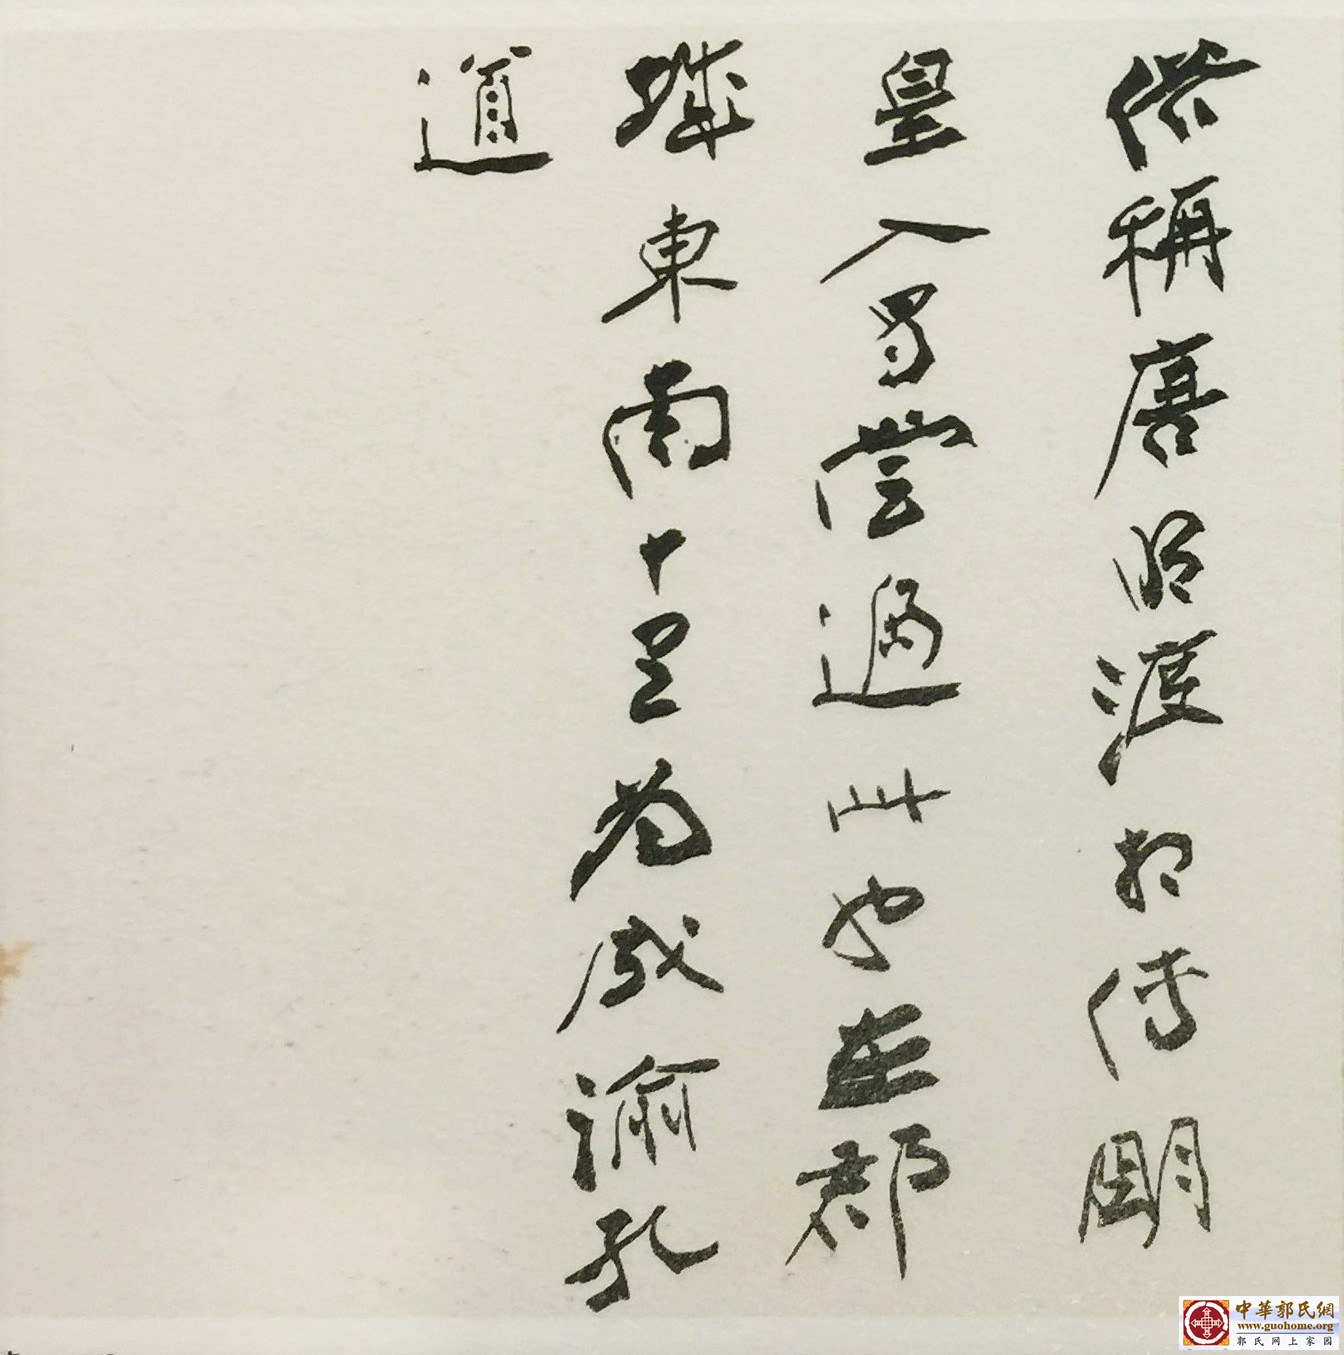 俗稱唐明渡相傳明
皇入蜀嘗過此也在郡
城東南十里為咸渝孔
道
中華郭氏網
www.guohome.org
郭氏网上家园